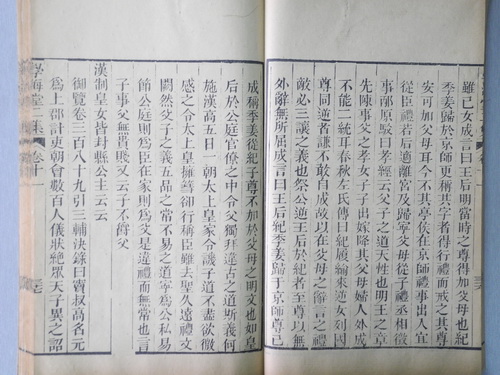 雖已女成言曰王后明當時之尊得加父母也紀
季姜歸於京師更稱其字者得行禮而戒其尊
安可加父母耳今不其亭侯在京師禮事出入宜
從臣禮若后適離宮及歸寧父母從子禮丞相徵
事邴原駁曰孝經云父子之道天性也明王之章
先陳事父之孝女子子出嫁降其父母婦人外成
不能二統耳春秋左氏傳曰紀履緰來逆女列國
尊同逆者謙不敢自成故以在父母之辭言之禮
敵必三讓之義也祭公逆王后於紀者至尊以無
外辭無所屈成言曰王后紀季姜歸于京師尊已
成稱季姜從紀子尊不加於父母之明文也如皇
后於公庭官僚之中令父獨拜違古之道斯義何
施漢高五日一朝太上皇家令譏子道不盡欲微
感之令太上皇擁篲卻行稱臣雖去聖久遠禮文
闕然父子之義五品之常不易之道寧為公私易
節公庭則為臣在家則為父是違禮而無常也言
子事父無貴賤又云子不爵父
漢制皇女皆封縣公主云云
御覽卷三百八十九引三輔決錄曰竇叔高名元
為上郡計吏朝會數百人儀狀絕眾天子異之詔
學海堂二集 卷十一